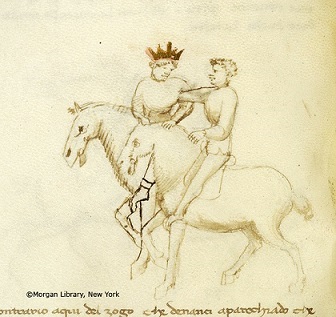 ©Morgan Library, New York
contrario aqui dei zogo che denanci aparechiado che